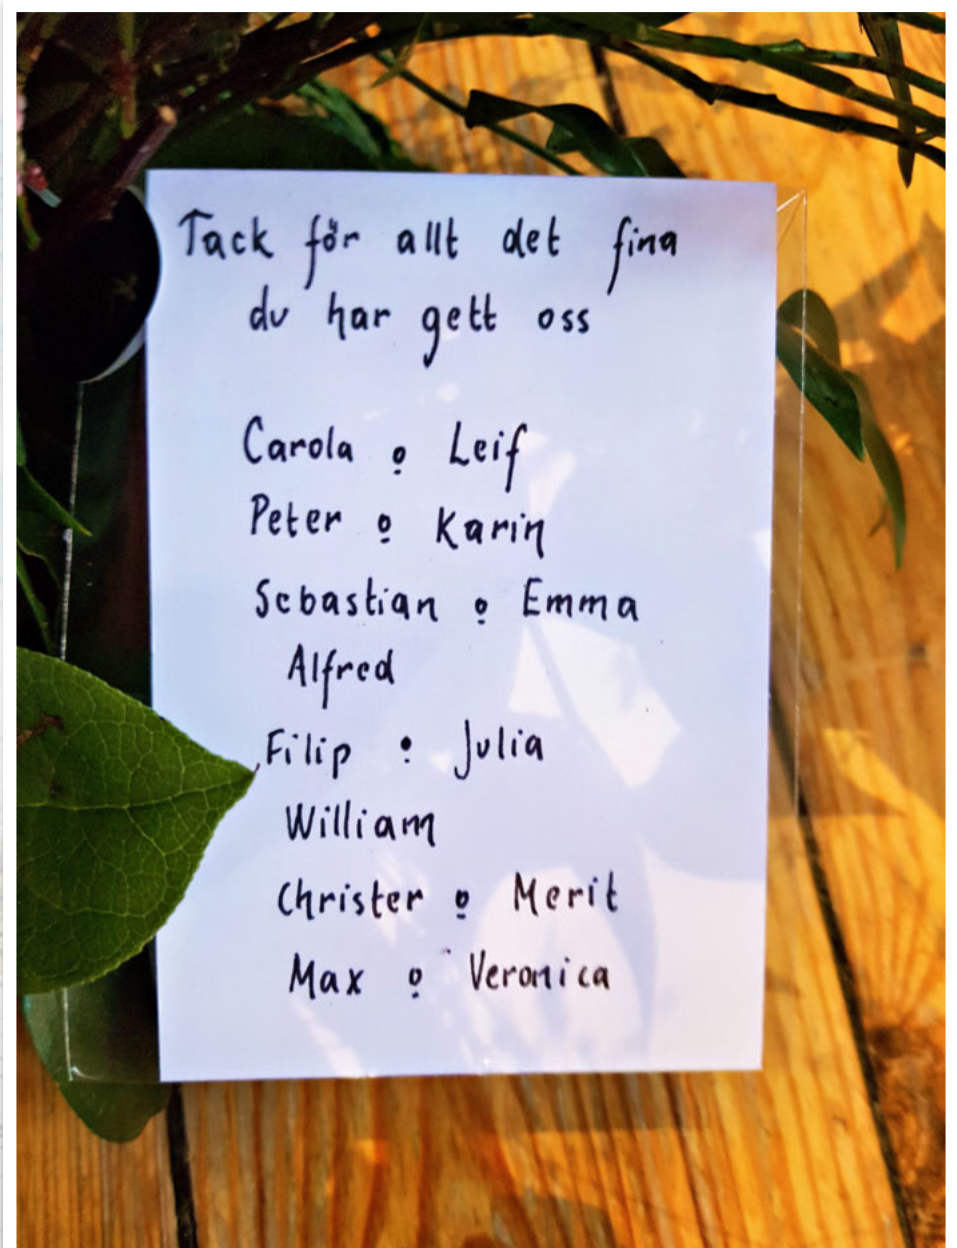 Tack för allt det fina
du har gett oss
Carola o Leif
Peter o Karin
Sebastian o Emma
Alfred
Filip o Julia
William
Christer o Merit
Max o Veronica